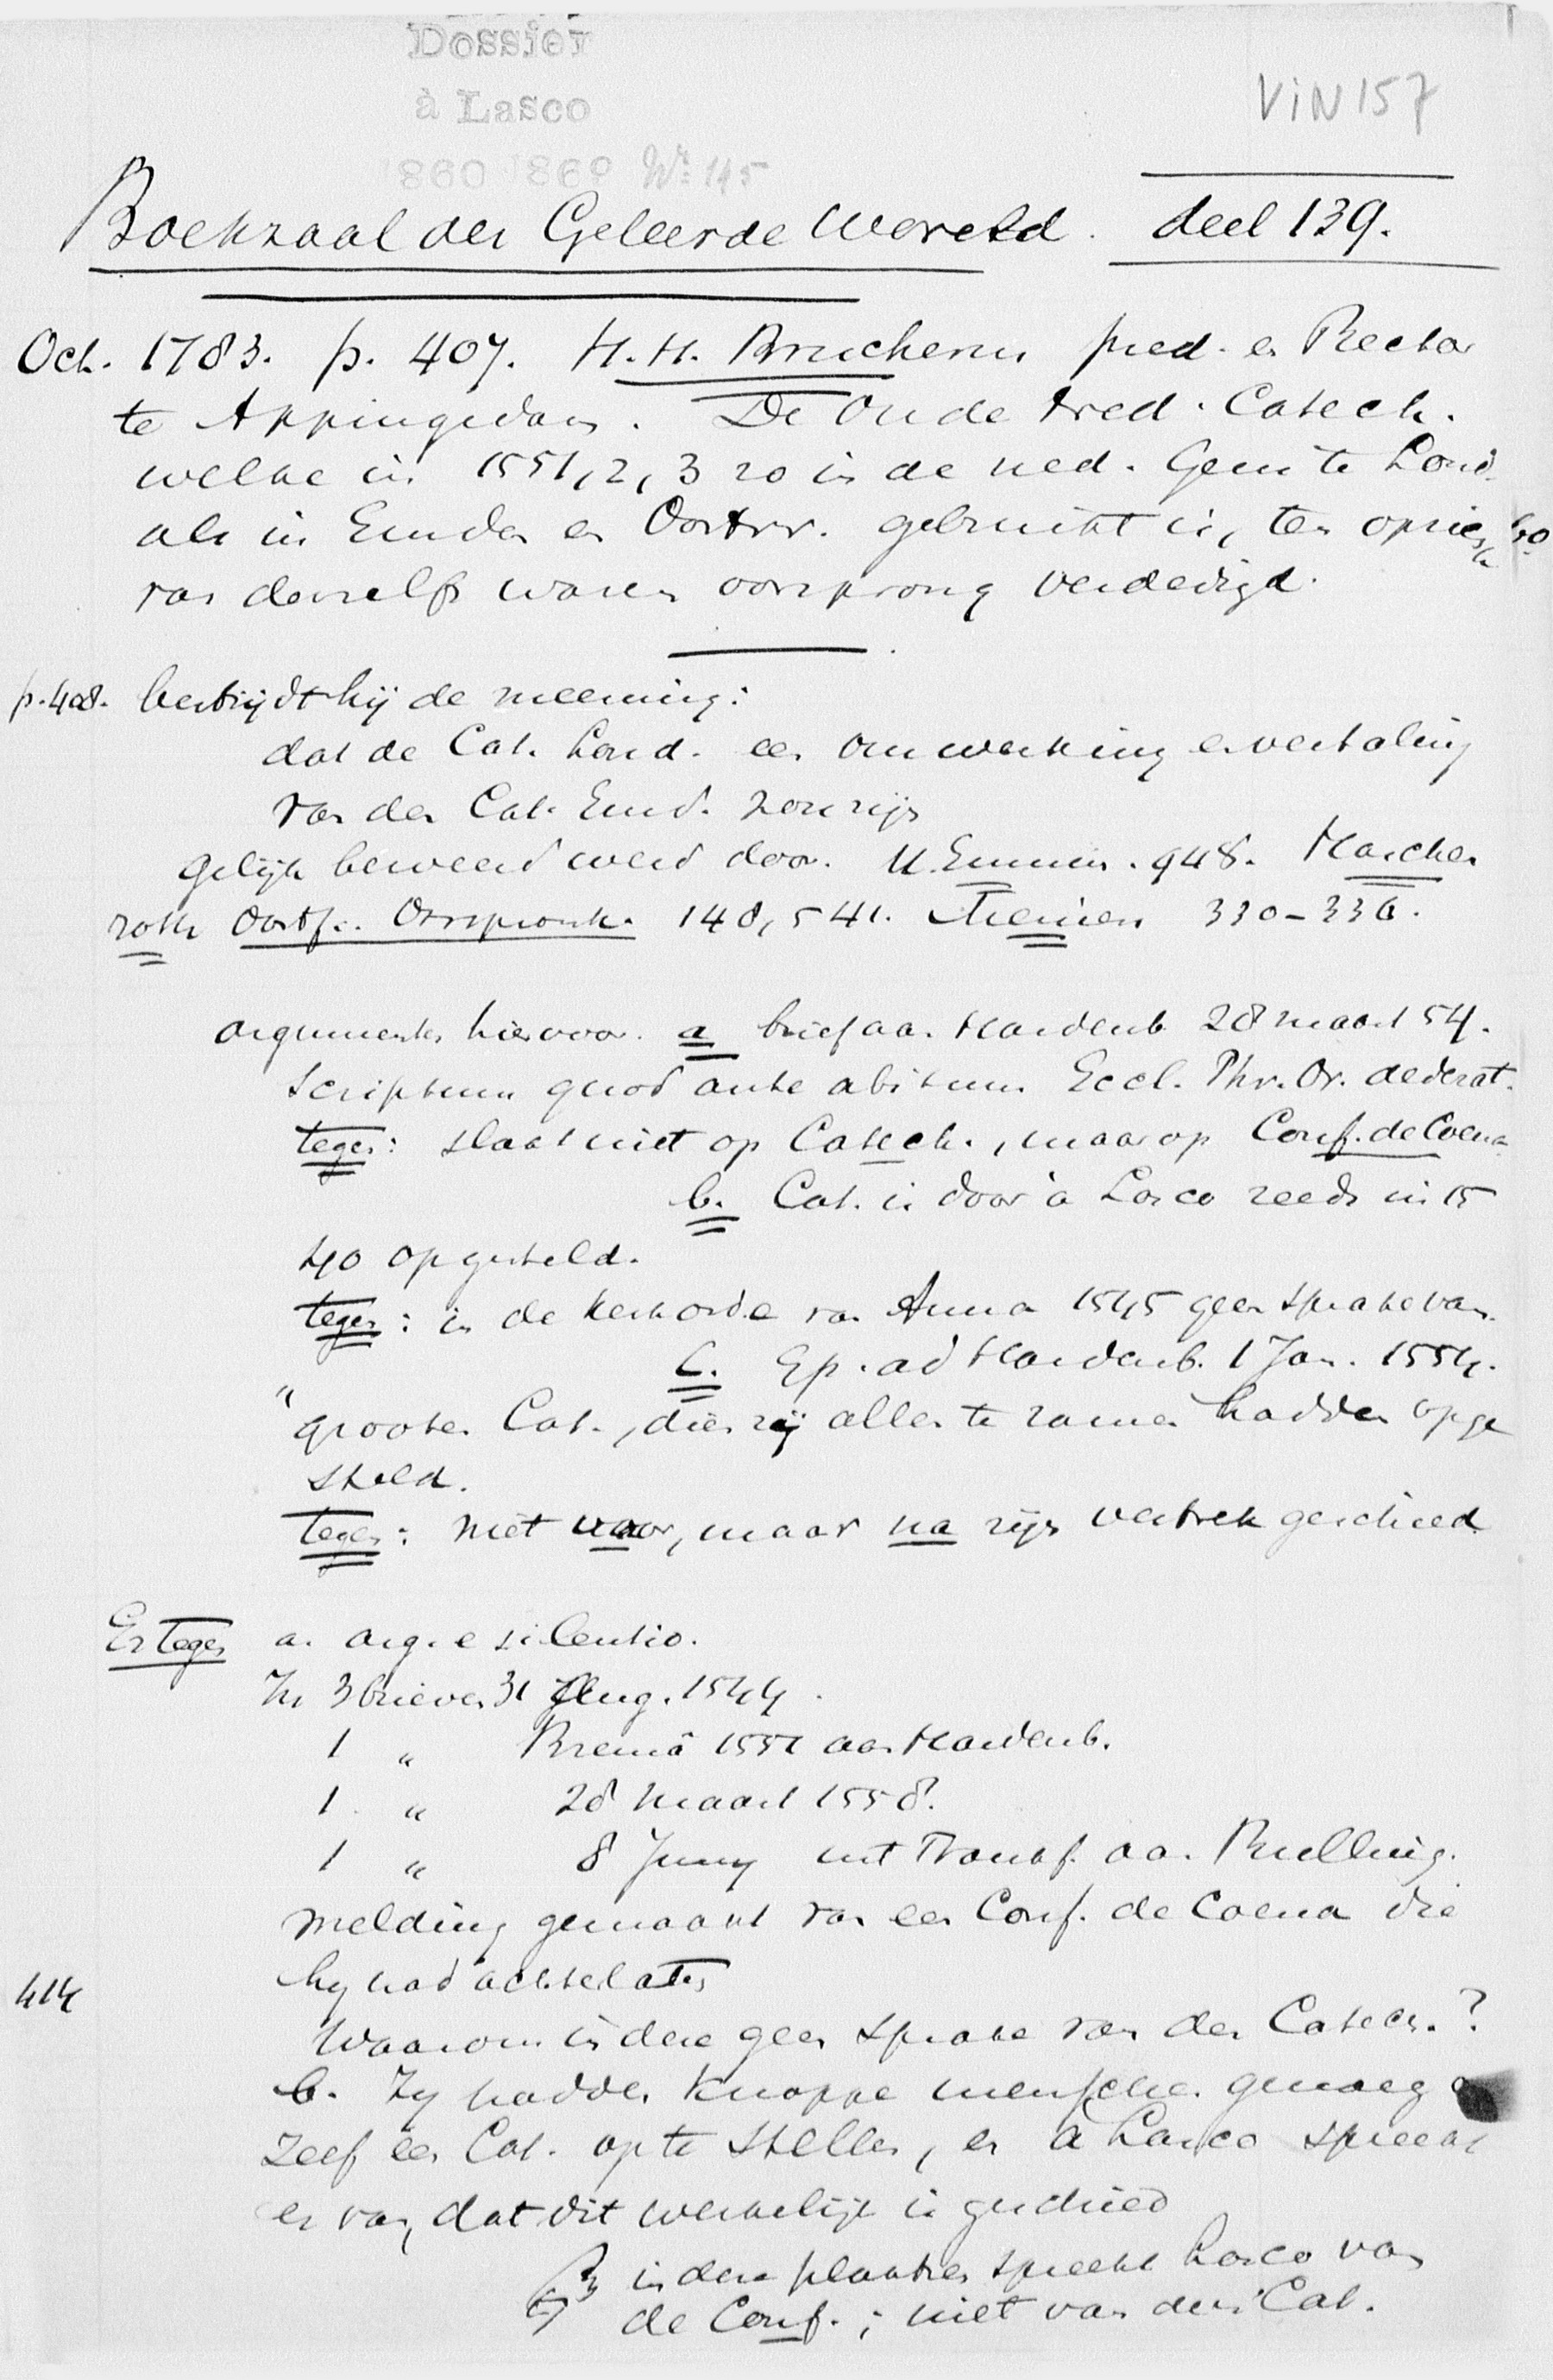 Dossier
à Lasco
1860 1869 No 115
VIN157
Boekzaal der Geleerde Wereld. deel 139.
Oct. 1783. p. 407. H.H. Brucherus pred. en Rector
te Appingedam. De Oude Ned. Catech.
welke in 1551, 2, 3 zo in de ned. Gem te Lond.
als in Emden en Oostvr. gebruikt is, ten opzich
van deszelfs waren oorsprong verdedigd.
p. 408. bestrijdt hij de meening:
dat de Cat. Lond. een omwerking en vertaling
van den Cat. Emd. zou zijn
gelijk beweerd werd door. U. Emmius. 948. Harcken
roth Oostfr. Oorspronk. 148, 541. Meiners 330-336.
argumenten hiervoor. a brief aan Hardenb 28 maart 54.
scriptum quod ante abitum Eccl. Phr. Or. dederat.
tegen: slaat niet op Catech., maar op Conf. de Coena
b. Cat. is door à Lasco reeds in 15
40 opgesteld.
tegen: in de kerkorde van Anna 1545 geen sprake van.
C. Ep. ad Hardenb. 1 Jan. 1554.
"grooten Cat., dien zij allen te zamen hadden opge
steld.
tegen: niet voor, maar na zijn vertrek geschied
En tegen a. arg. e silentio.
In 3 brieven 31 Aug. 1544.
1 " Bremâ 1551 aan Hardenb.
1 " 28 maart 1558.
1 " 8 Juny uit Frankf. aan Bulling.
melding gemaakt van een Conf. de Coena die
hy had achterlaten
414
Waarom is deze geen sprake van den Catech.?
b. Zy hadden knappe menschen genoeg
zelf een Cat. op te stellen, en à Lasco spreekt
er van, dat dit werkelijk is geschied
in deze plaatsen spreekt Lasco van
de Conf.; niet van den Cat.